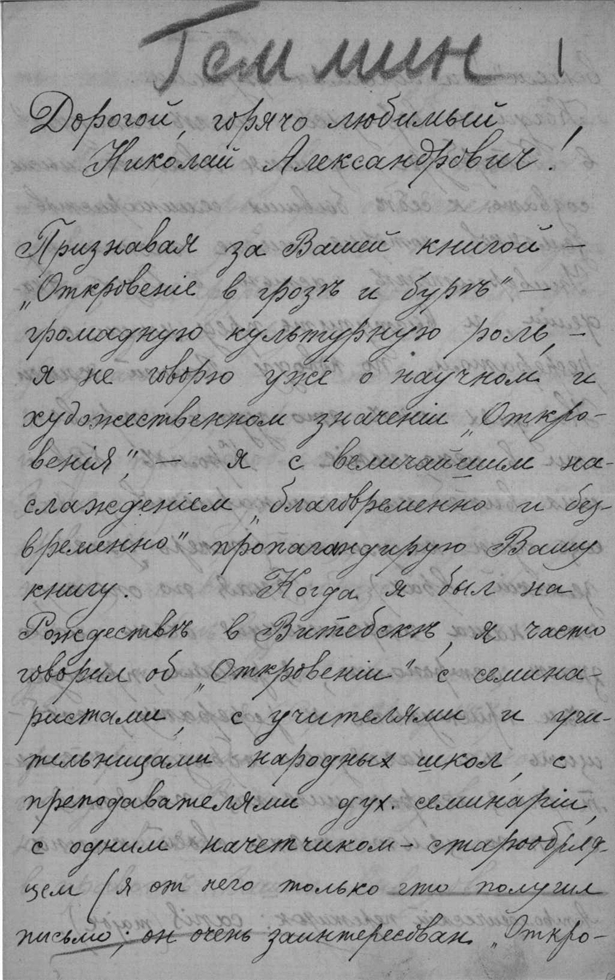 Гем мин !
Дорогой, горячо любимый,
Николай Александрович!
Признавая за Вашей книгой —
„Откровеніе в грозѣ и бурѣ" —
громадную культурную роль, —
я не говорю уже о научном и
художественном значеніи „Откро-
венія", — я с величайшим на-
слажденіем „благовременно и без-
временно" пропагандирую Вашу
книгу. Когда я был на
Рождествѣ в Витебскѣ, я часто
говорил об „Откровеніи" с семина-
ристами, с учителями и учи-
тельницами народных школ, с
преподавателями дух. семинаріи,
с одним начетчиком-старообряд-
цем (я от него только что получил
письмо; он очень заинтересован „Откро-